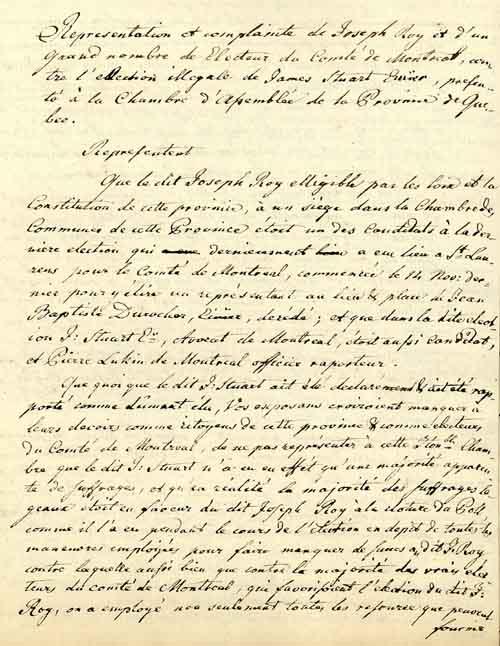 Representation et complainte de Joseph Roy et d'un
Grand nombre de Electeur du Comté de Montreal, con-
tre l'election illegale de James Stuart Ecuier, presen-
té à la Chambre d'Assemblée de la Province de Que-
bec.
Representent
Que le dit Joseph Roy eligible par les loix et la
Constitution de cette province, à un siege dans la Chambre de
Communes de cette Province étoit un des Candidats à la der-
niere election qui dernierement a eu lieu a St. Lau-
rens pour le Comté de Montreal, commencée le 14 Nov: der-
nier pour y élire un représentant au lieu & place de Jean
Baptiste Durocher, Ecuier, decedé; et que dans la dite elect-
ion Js: Stuart Er., Avocat de Montreal, étoit aussi Candidat,
et Pierre Lukin de Montreal officier raporteur.
Que quoi que le dit Js. Stuart ait été declaré & ait été rap-
porté comme dument élu, Vos exposans croiroient manquer à
leurs devoirs comme citoyens de cette province & comme electeurs
du Comté de Montreal, de ne pas representer à cette Honble. Cham-
bre que le dit Js: Stuart n'a eu en effet qu'une majorité apparen-
te de suffrages, et qu'en réalité la majorité des suffrages lé-
geaux étoit en faveur du dit Joseph Roy a la cloture du Poll
comme il l'a eu pendant le cours de l'Election en depit de toutes les
maneuvres emploiées pour faire manquer de succes au dit Js. Roy
contre laquelle aussi bien que contre la majorité des vrais elec-
teurs du comté de Montreal, qui favorisoient l'election du dit J.
Roy, on a employé non seulement toutes les resources que peuvent
fournir